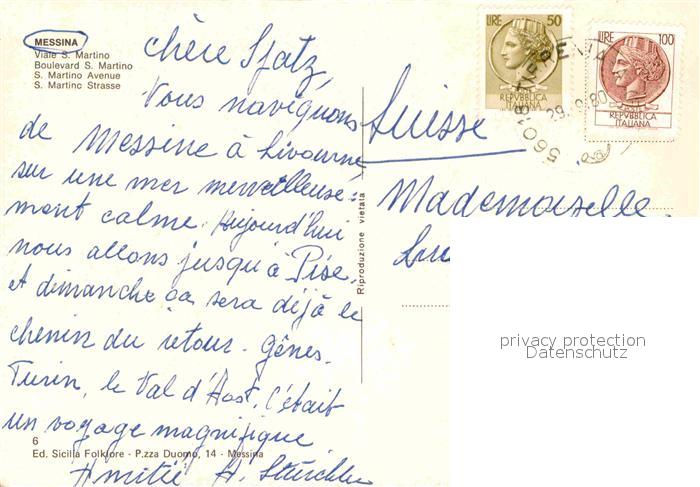 MESSINA
Viale S. Martino
Boulevard S. Martino
S. Martino Avenue
S. Martino Strasse
Chère Spatz,
Vous naviguons
de Messine à Livourne
sur une mer merveilleuse-
ment calme. Aujourd'hui
nous allons jusqu'à Pise
et dimanche ça sera déjà le
chemin du retour. Gênes.
Turin, le Val d'Aost. C'était
un voyage magnifique
Amitié H.
6
Ed. Sicilia Folklore - P.zza Duomo, 14 - Messina
Riproduzione vietata
LIRE 50
REPVBBLICA
ITALIANA
LIRE 100
REPVBBLICA
ITALIANA
56018
Suisse
Mademoiselle
privacy protection
Datenschutz